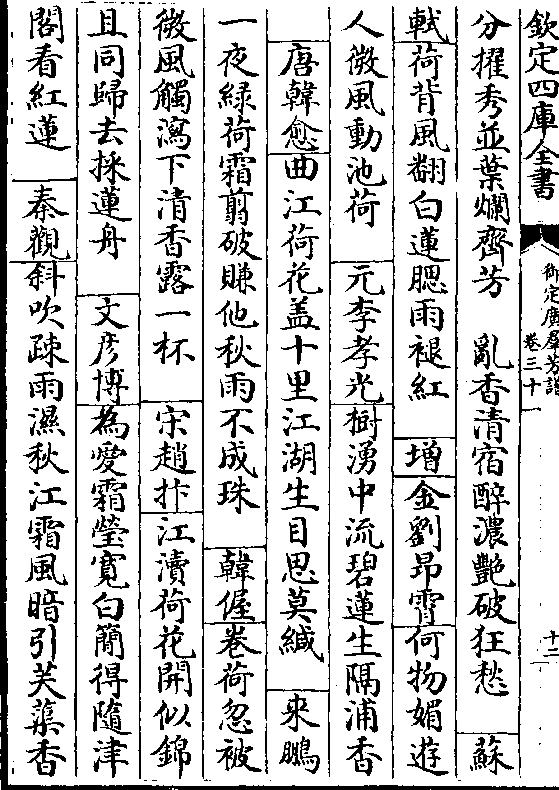 欽定四庫全書
御定廣羣芳譜
卷三十
十二
分擢秀並葉爛齊芳 亂香清宿醉濃艷破狂愁 蘇
軾荷背風翻白蓮腮雨褪紅 增金劉昂霄何物媚遊
人微風動池荷 元李孝光樹湧中流碧蓮生隔浦香
唐韓愈曲江荷花盖十里江湖生目思莫緘 來鵬
一夜緑荷霜剪破賺他秋雨不成珠 韓偓卷荷忽被
微風觸瀉下清香露一杯 宋趙抃江瀆荷花開似錦
且同歸去採蓮舟 文彦博為愛霜瑩寛白簡得隨津
閣看紅蓮 秦觀斜吹疎雨濕秋江霜風暗引芙蕖香